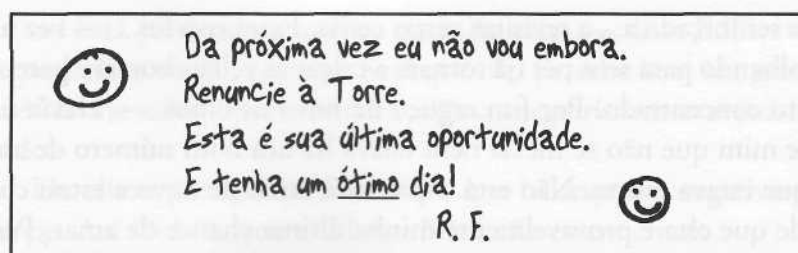 Da próxima vez eu não vou embora.
Renuncie a Torre.
Esta é sua última oportunidade.
E tenha um ótimo dia!
R. F.